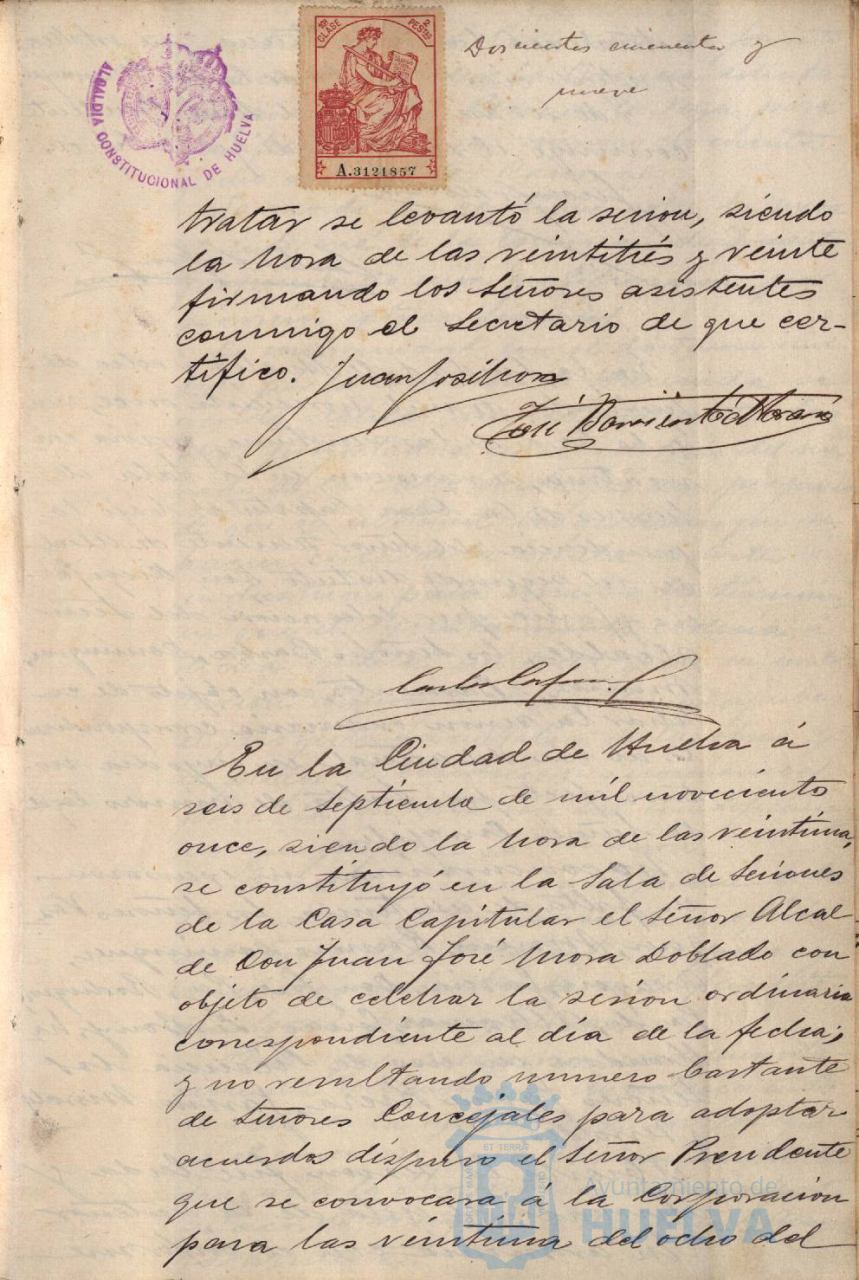 ALCALDÍA CONSTITUCIONAL DE HUELVA
10ª CLASE
2 PESTAS
A.3121857
Doscientos cincuenta y
nueve
tratar se levantó la sesion, siendo
la hora de las veintitrés y veinte
firmando los Señores asistentes
conmigo el Secretario de que cer-
tifico. Juan José Mora
José Barrientos
En la Ciudad de Huelva á
seis de Septiembre de mil noveciento
once, siendo la hora de las veintiuna,
se constituyó en la Sala de Sesiones
de la Casa Capitular el Señor Alcal-
de Don Juan José Mora Doblado con
objeto de celebrar la sesion ordinaria
correspondiente al día de la fecha;
y no resultando numero bastante
de Señores Concejales para adoptar
acuerdos dispuso el Señor Presidente
que se convocara á la Corporacion
para las veintiuna del ocho del
Ayuntamiento de
HUELVA